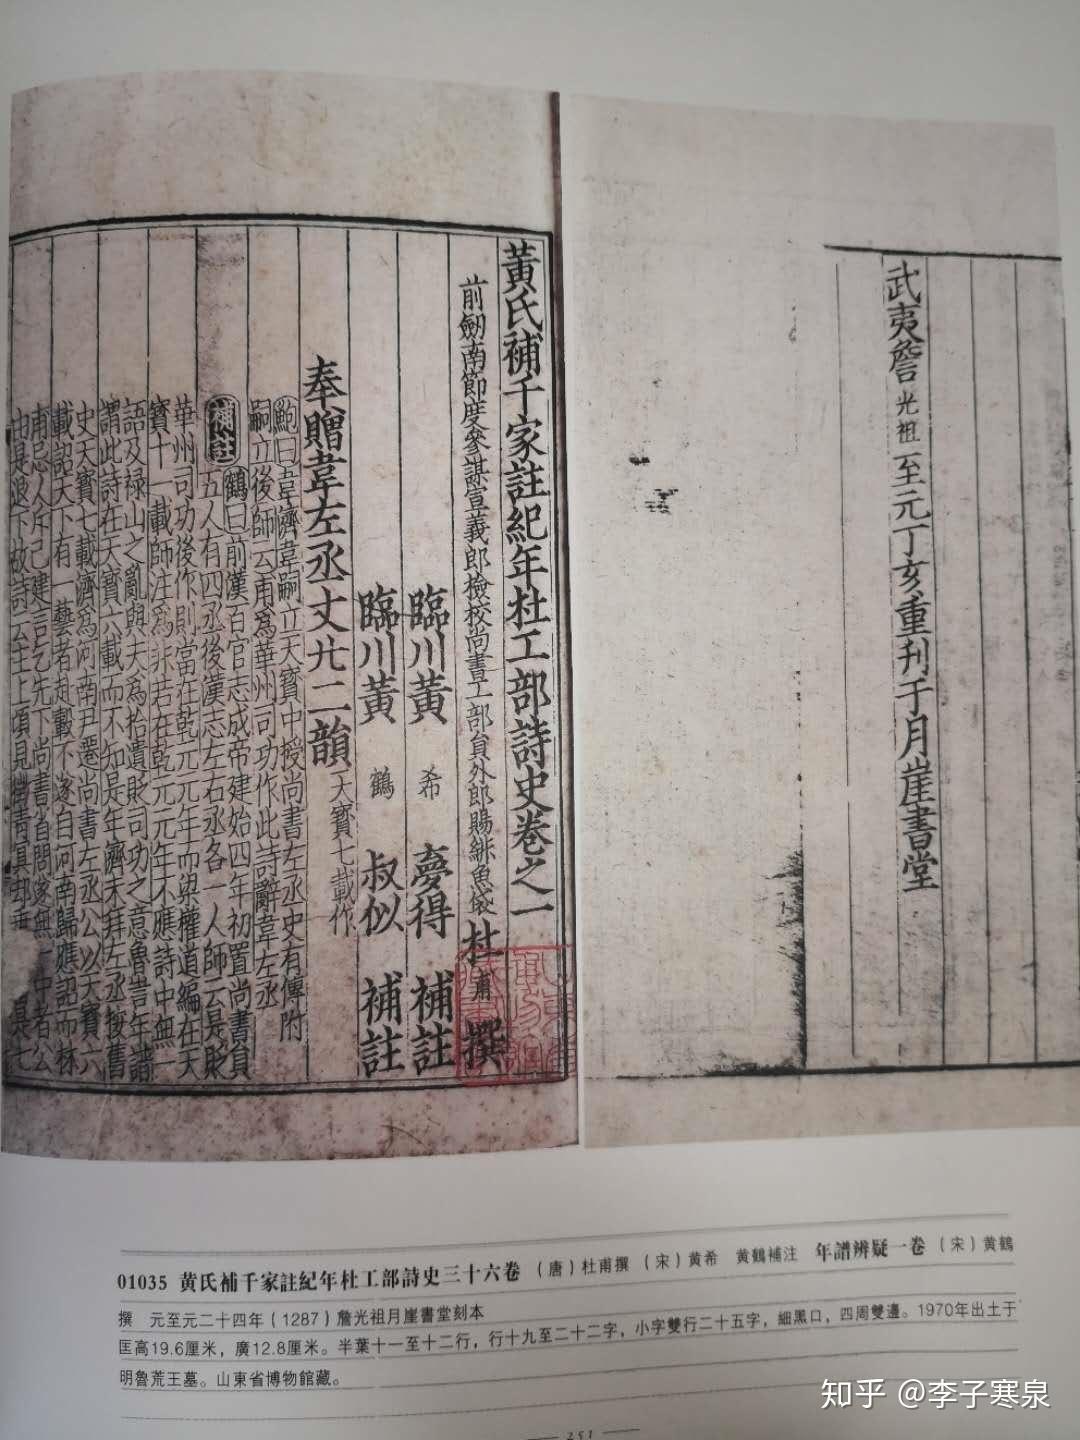 武夷詹光祖至元丁亥重刊于月崖書堂
黃氏補千家註紀年杜工部詩史卷之一
前劒南節度參謀宣義郎檢校尚書工部員外郎賜緋魚袋杜甫撰
臨川黃希夢得補註
臨川黃鶴叔似補註
奉贈韋左丞丈廿二韻天寶七載作
鮑曰韋濟韋嗣立天寶中授尚書左丞史有傳附
嗣立後師云甫爲華州司功作此詩辭韋左丞
補註鶴曰前漢百官志成帝建始四年初置尚書員
五人有四丞後漢志左右丞各一人師云是貶
華州司功後作則當在乾元元年而梁權道編在天
寶十一載師注爲非若在乾元元年不應詩中無一
語及禄山之亂與夫爲拾遺貶司功之意魯訔年譜
謂此詩在天寶六載而不知是年濟未拜左丞按舊
史天寶七載濟爲河南尹遷尚書左丞公以天寶六
載詔天下有一藝者赴轂不遂自河南歸應詔而林
甫忌人斥己建言乞先下尚書省問遂無一中者公
由是退下故詩云主上頃見徵青冥却垂 是七
01035 黄氏補千家註紀年杜工部詩史三十六卷 （唐）杜甫撰 （宋）黄希 黄鶴補注 年譜辨疑一卷 （宋）黄鶴
撰 元至元二十四年（1287）詹光祖月崖書堂刻本
匡高19.6厘米，廣12.8厘米。半葉十一至十二行，行十九至二十二字，小字雙行二十五字，細黑口，四周雙邊。1970年出土于
明魯荒王墓。山東省博物館藏。
251
知乎 @李子寒泉